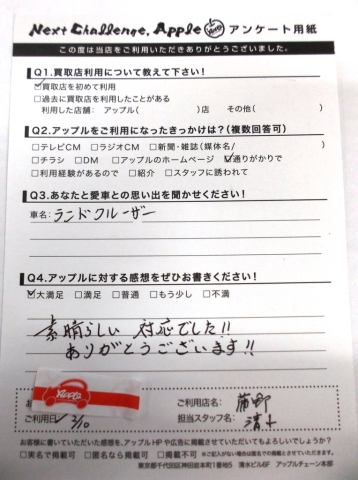 Next Challenge, Apple アンケート用紙
この度は当店をご利用いただきありがとうございました。
Q1.買取店利用について教えて下さい!
☑買取店を初めて利用
□過去に買取店を利用したことがある
利用した店舗: アップル( )店 その他( )
Q2.アップルをご利用になったきっかけは?(複数回答可)
□テレビCM □ラジオCM □新聞・雑誌(媒体名/ )
□チラシ □DM □アップルのホームページ ☑通りがかりで
□利用経験があるので □紹介 □スタッフに誘われて
Q3.あなたと愛車との思い出を聞かせください!
車名: ランドクルーザー
Q4.アップルに対する感想をぜひお書きください!
☑大満足 □満足 □普通 □もう少し □不満
素晴らしい 対応でした!!
ありがとうございます!!
Apple
ご利用店名/
ご利用日/ 2/10 担当スタッフ名/
お客様に書いていただいた感想を、アップルHPや広告に掲載させていただいてもよろしいでしょうか?
□実名で掲載可 □匿名なら掲載可 □掲載不可 ※ご記入がない場合は匿名での掲載とさせていただきます。
東京都千代田区神田岩本町1番地5 清水ビル6F アップルチェーン本部